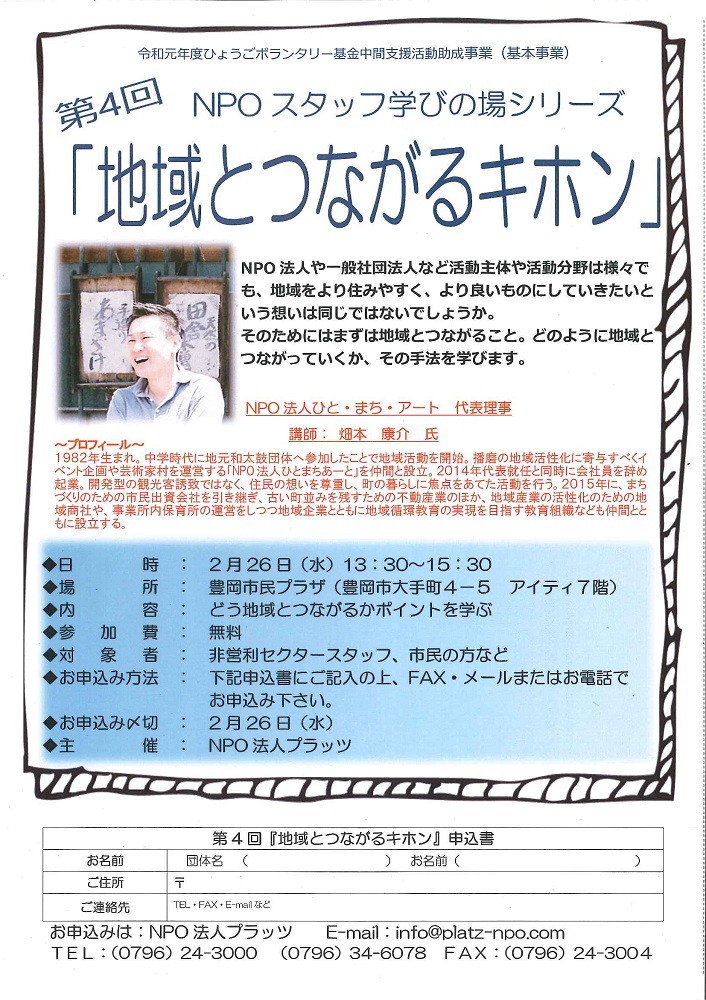 令和元年度ひょうごボランタリー基金中間支援活動助成事業（基本事業）
第4回 NPO スタッフ学びの場シリーズ
「地域とつながるキホン」
NPO 法人や一般社団法人など活動主体や活動分野は様々で
も、地域をより住みやすく、より良いものにしていきたいと
いう想いは同じではないでしょうか。
そのためにはまずは地域とつながること。どのように地域と
つながっていくか、その手法を学びます。
NPO 法人ひと・まち・アート　代表理事
講師：　畑本　康介　氏
～プロフィール～
1982年生まれ。中学時代に地元和太鼓団体へ参加したことで地域活動を開始。播磨の地域活性化に寄与すべくイ
ベント企画や芸術家村を運営する「NPO 法人ひとまちあーと」を仲間と設立。2014年代表就任と同時に会社員を辞め
起業。開発型の観光客誘致ではなく、住民の想いを尊重し、町の暮らしに焦点をあてた活動を行う。2015年に、まち
づくりのための市民出資会社を引き継ぎ、古い町並みを残すための不動産業のほか、地域産業の活性化のための地
域商社や、事業所内保育所の運営をしつつ地域企業とともに地域循環教育の実現を目指す教育組織なども仲間とと
もに設立する。
◆日　　時　：　２月２６日（水）１３：３０～１５：３０
◆場　　所　：　豊岡市民プラザ（豊岡市大手町４－５　アイティ７階）
◆内　　容　：　どう地域とつながるかポイントを学ぶ
◆参　加　費　：　無料
◆対　象　者　：　非営利セクタースタッフ、市民の方など
◆お申込み方法　：　下記申込書にご記入の上、FAX・メールまたはお電話で
お申込み下さい。
◆お申込み〆切　：　２月２６日（水）
◆主　　催　：　NPO 法人プラッツ
第４回『地域とつながるキホン』申込書
お名前　団体名　（　　　　　　）　お名前（　　　　　　）
ご住所　〒
ご連絡先　TEL・FAX・E-mail など
お申込みは：NPO 法人プラッツ　　E-mail：info@platz-npo.com
ＴＥＬ：(0796) 24-3000　(0796) 34-6078　ＦＡＸ：(0796) 24-3004